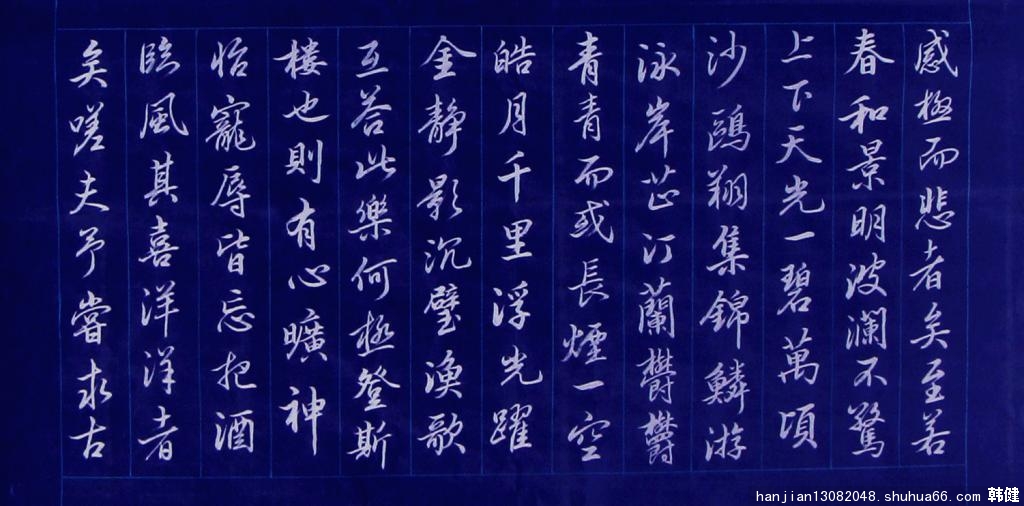 感極而悲者矣至若
春和景明波瀾不驚
上下天光一碧萬頃
沙鷗翔集錦鱗游
泳岸芷汀蘭欝欝
青青而或長煙一空
皓月千里浮光躍
金靜影沉璧漁歌
互答此樂何極登斯
樓也則有心曠神
怡寵辱皆忘把酒
臨風其喜洋洋者
矣嗟夫予嘗求古
hanjian13082048.shuhua66.com 韩健